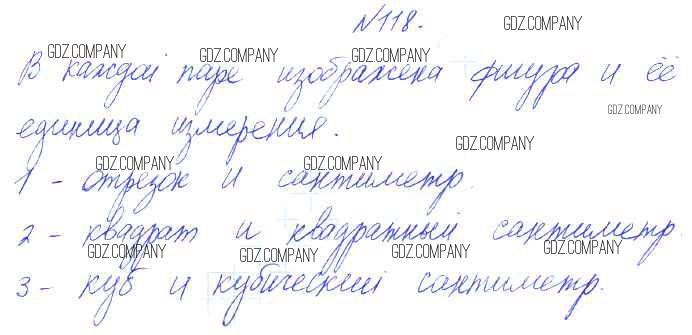 №118.
В каждой паре изображена фигура и её
единица измерения.
1 - отрезок и сантиметр.
2 - квадрат и квадратный сантиметр.
3 - куб и кубический сантиметр.
GDZ.COMPANY
GDZ.COMPANY
GDZ.COMPANY
GDZ.COMPANY
GDZ.COMPANY
GDZ.COMPANY
GDZ.COMPANY
GDZ.COMPANY
GDZ.COMPANY
GDZ.COMPANY
GDZ.COMPANY